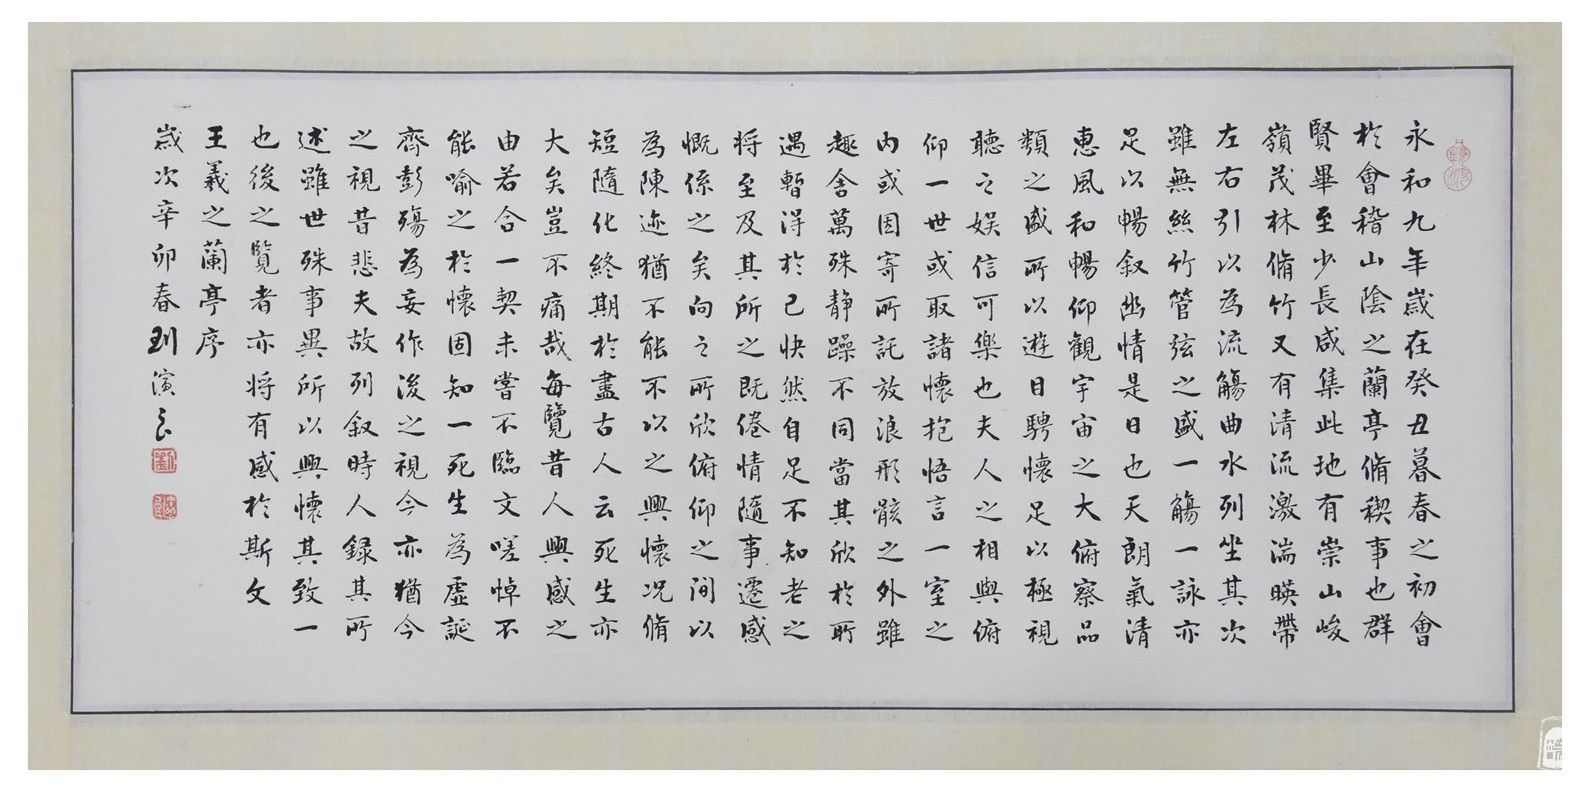 永和九年歲在癸丑暮春之初會
於會稽山陰之蘭亭脩稧事也群
賢畢至少長咸集此地有崇山峻
嶺茂林脩竹又有清流激湍暎帶
左右引以為流觴曲水列坐其次
雖無絲竹管弦之盛一觴一詠亦
足以暢叙幽情是日也天朗氣清
惠風和暢仰觀宇宙之大俯察品
類之盛所以遊目騁懷足以極視
聽之娛信可樂也夫人之相與俯
仰一世或取諸懷抱悟言一室之
内或因寄所託放浪形骸之外雖
趣舍萬殊静躁不同當其欣於所
遇暫得於己快然自足不知老之
將至及其所之既倦情隨事遷感
慨係之矣向之所欣俯仰之間以
為陳迹猶不能不以之興懷况脩
短隨化終期於盡古人云死生亦
大矣豈不痛哉每覽昔人興感之
由若合一契未嘗不臨文嗟悼不
能喻之於懷固知一死生為虛誕
齊彭殤為妄作後之視今亦猶今
之視昔悲夫故列叙時人録其所
述雖世殊事異所以興懷其致一
也後之覽者亦將有感於斯文
王羲之蘭亭序
歲次辛卯春刘演良